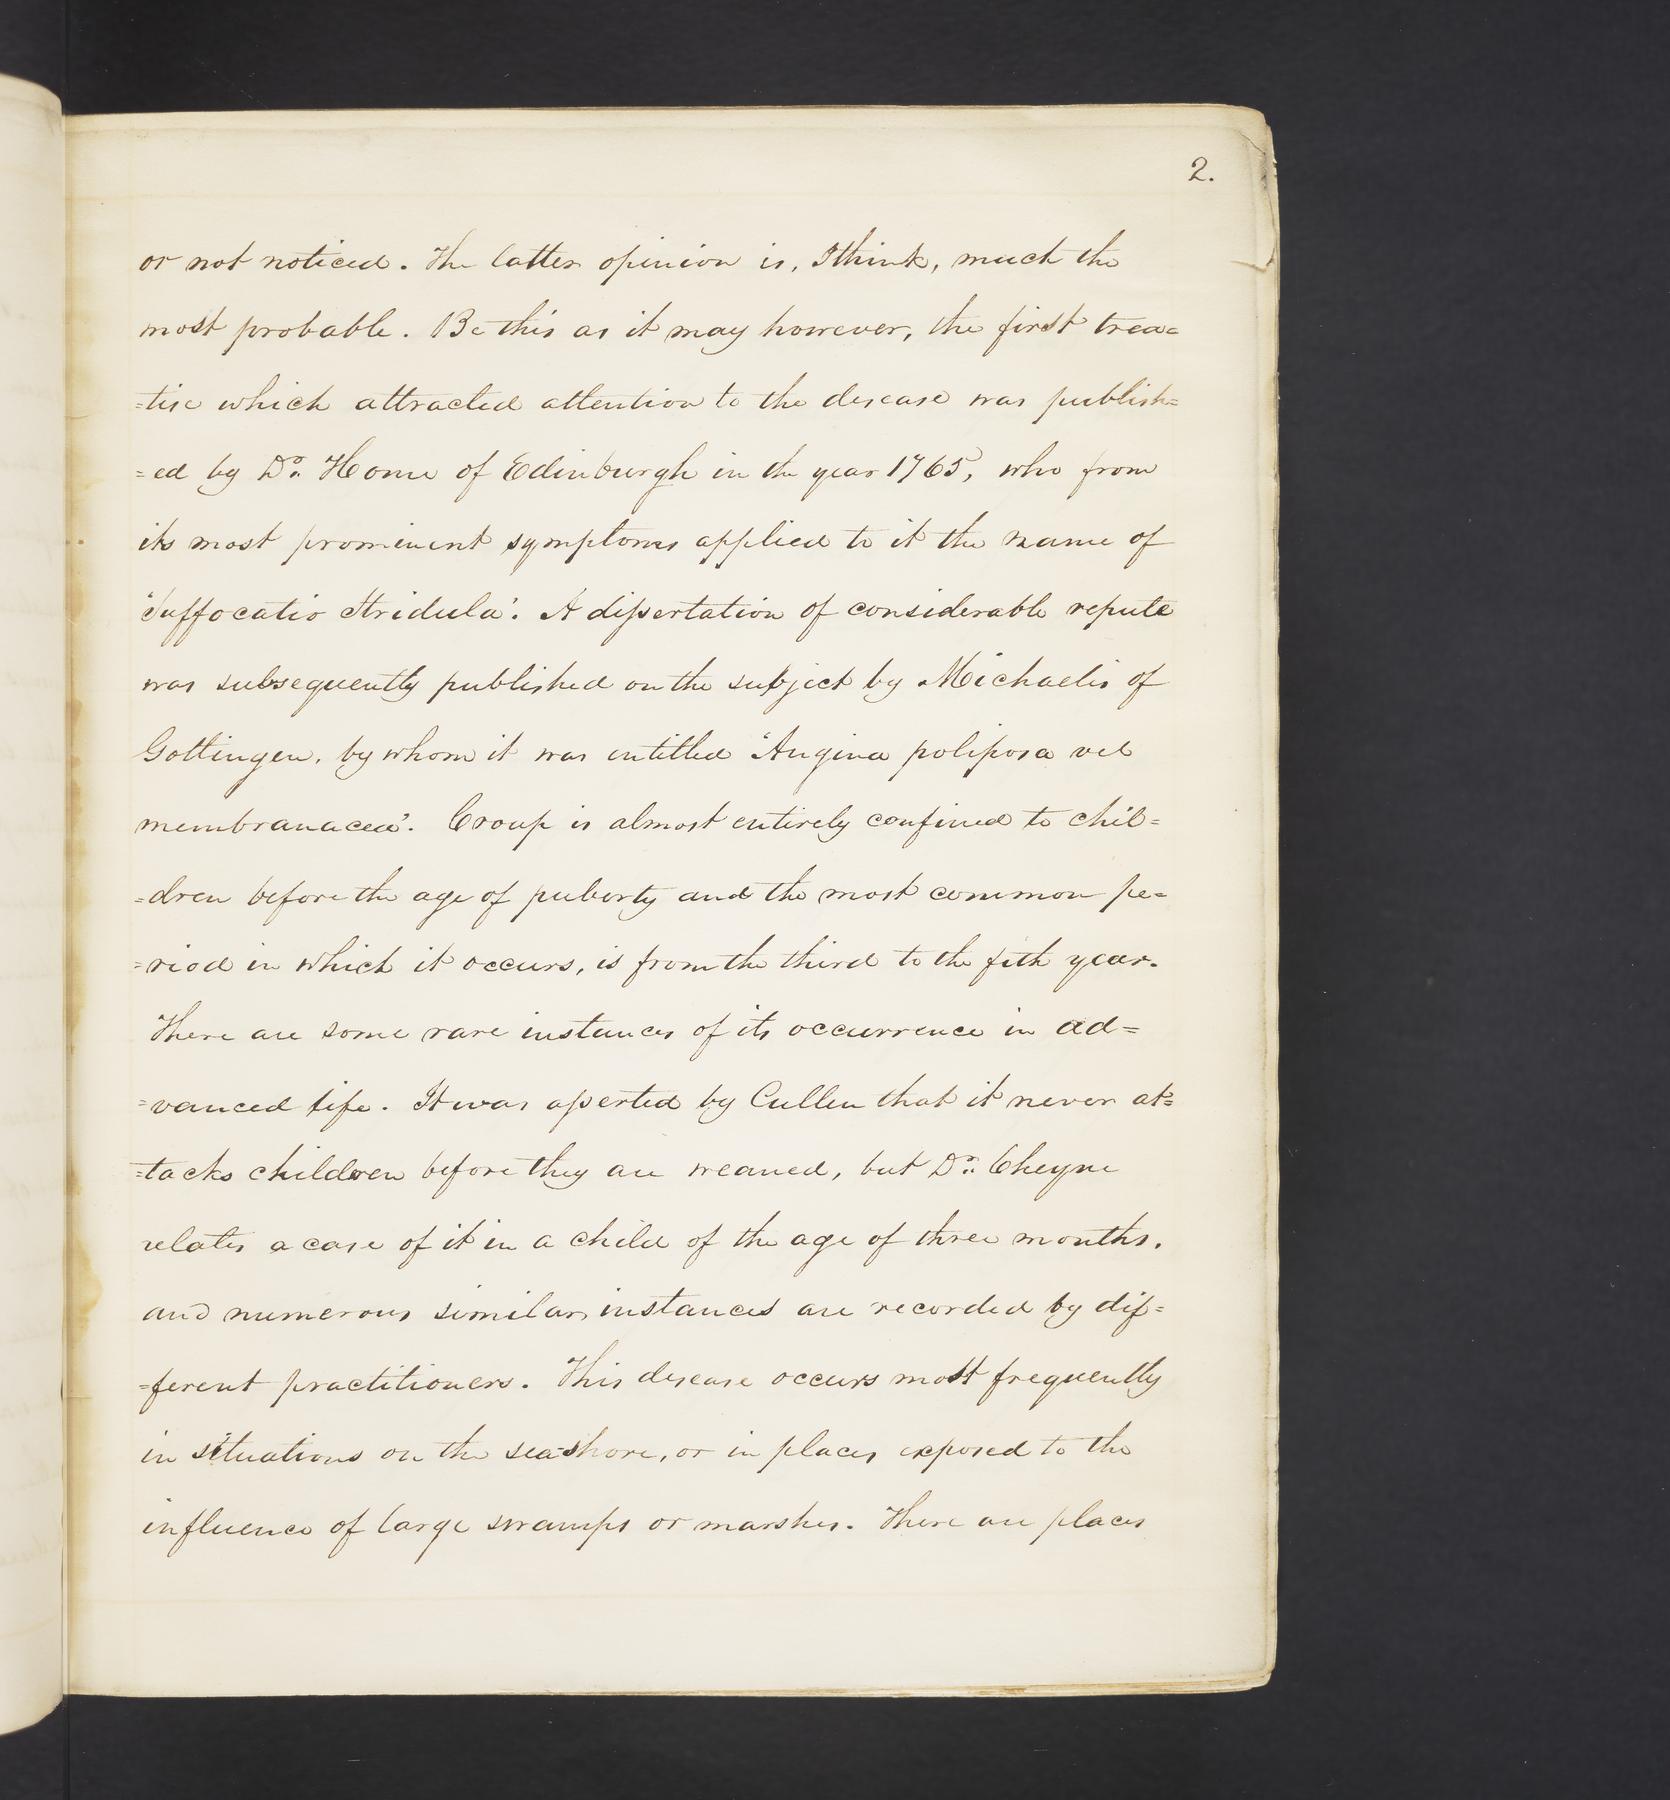 2.
or not noticed. The latter opinion is, I think, much the
most probable. Be this as it may however, the first trea=
=tise which attracted attention to the desease was publish=
=ed by Dr. Home of Edinburgh in the year 1765, who from
its most prominent symptoms applied to it the name of
'Suffocatio Stridula'. A dissertation of considerable repute
was subsequently published on the subject by Michaelis of
Gottingen, by whom it was intitled 'Angina poliposa vel
membranacea'. Croup is almost entirely confined to chil=
=dren before the age of puberty and the most common pe=
=riod in which it occurs, is from the third to the fith year.
There are some rare instances of its occurrence in ad=
=vanced life. It was asserted by Cullen that it never at=
=tacks children before they are weaned, but Dr. Cheyne
relates a case of it in a child of the age of three months,
and numerous similar instances are recorded by dif=
=ferent practitioners. This desease occurs most frequently
in situations on the sea-shore, or in places exposed to the
influence of large swamps or marshes. There are places